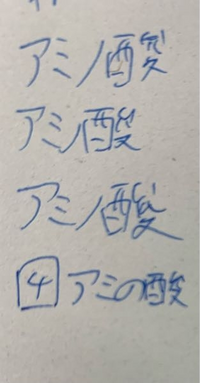 アミノ酸
アミノ酸
アミノ酸
4 アミの酸